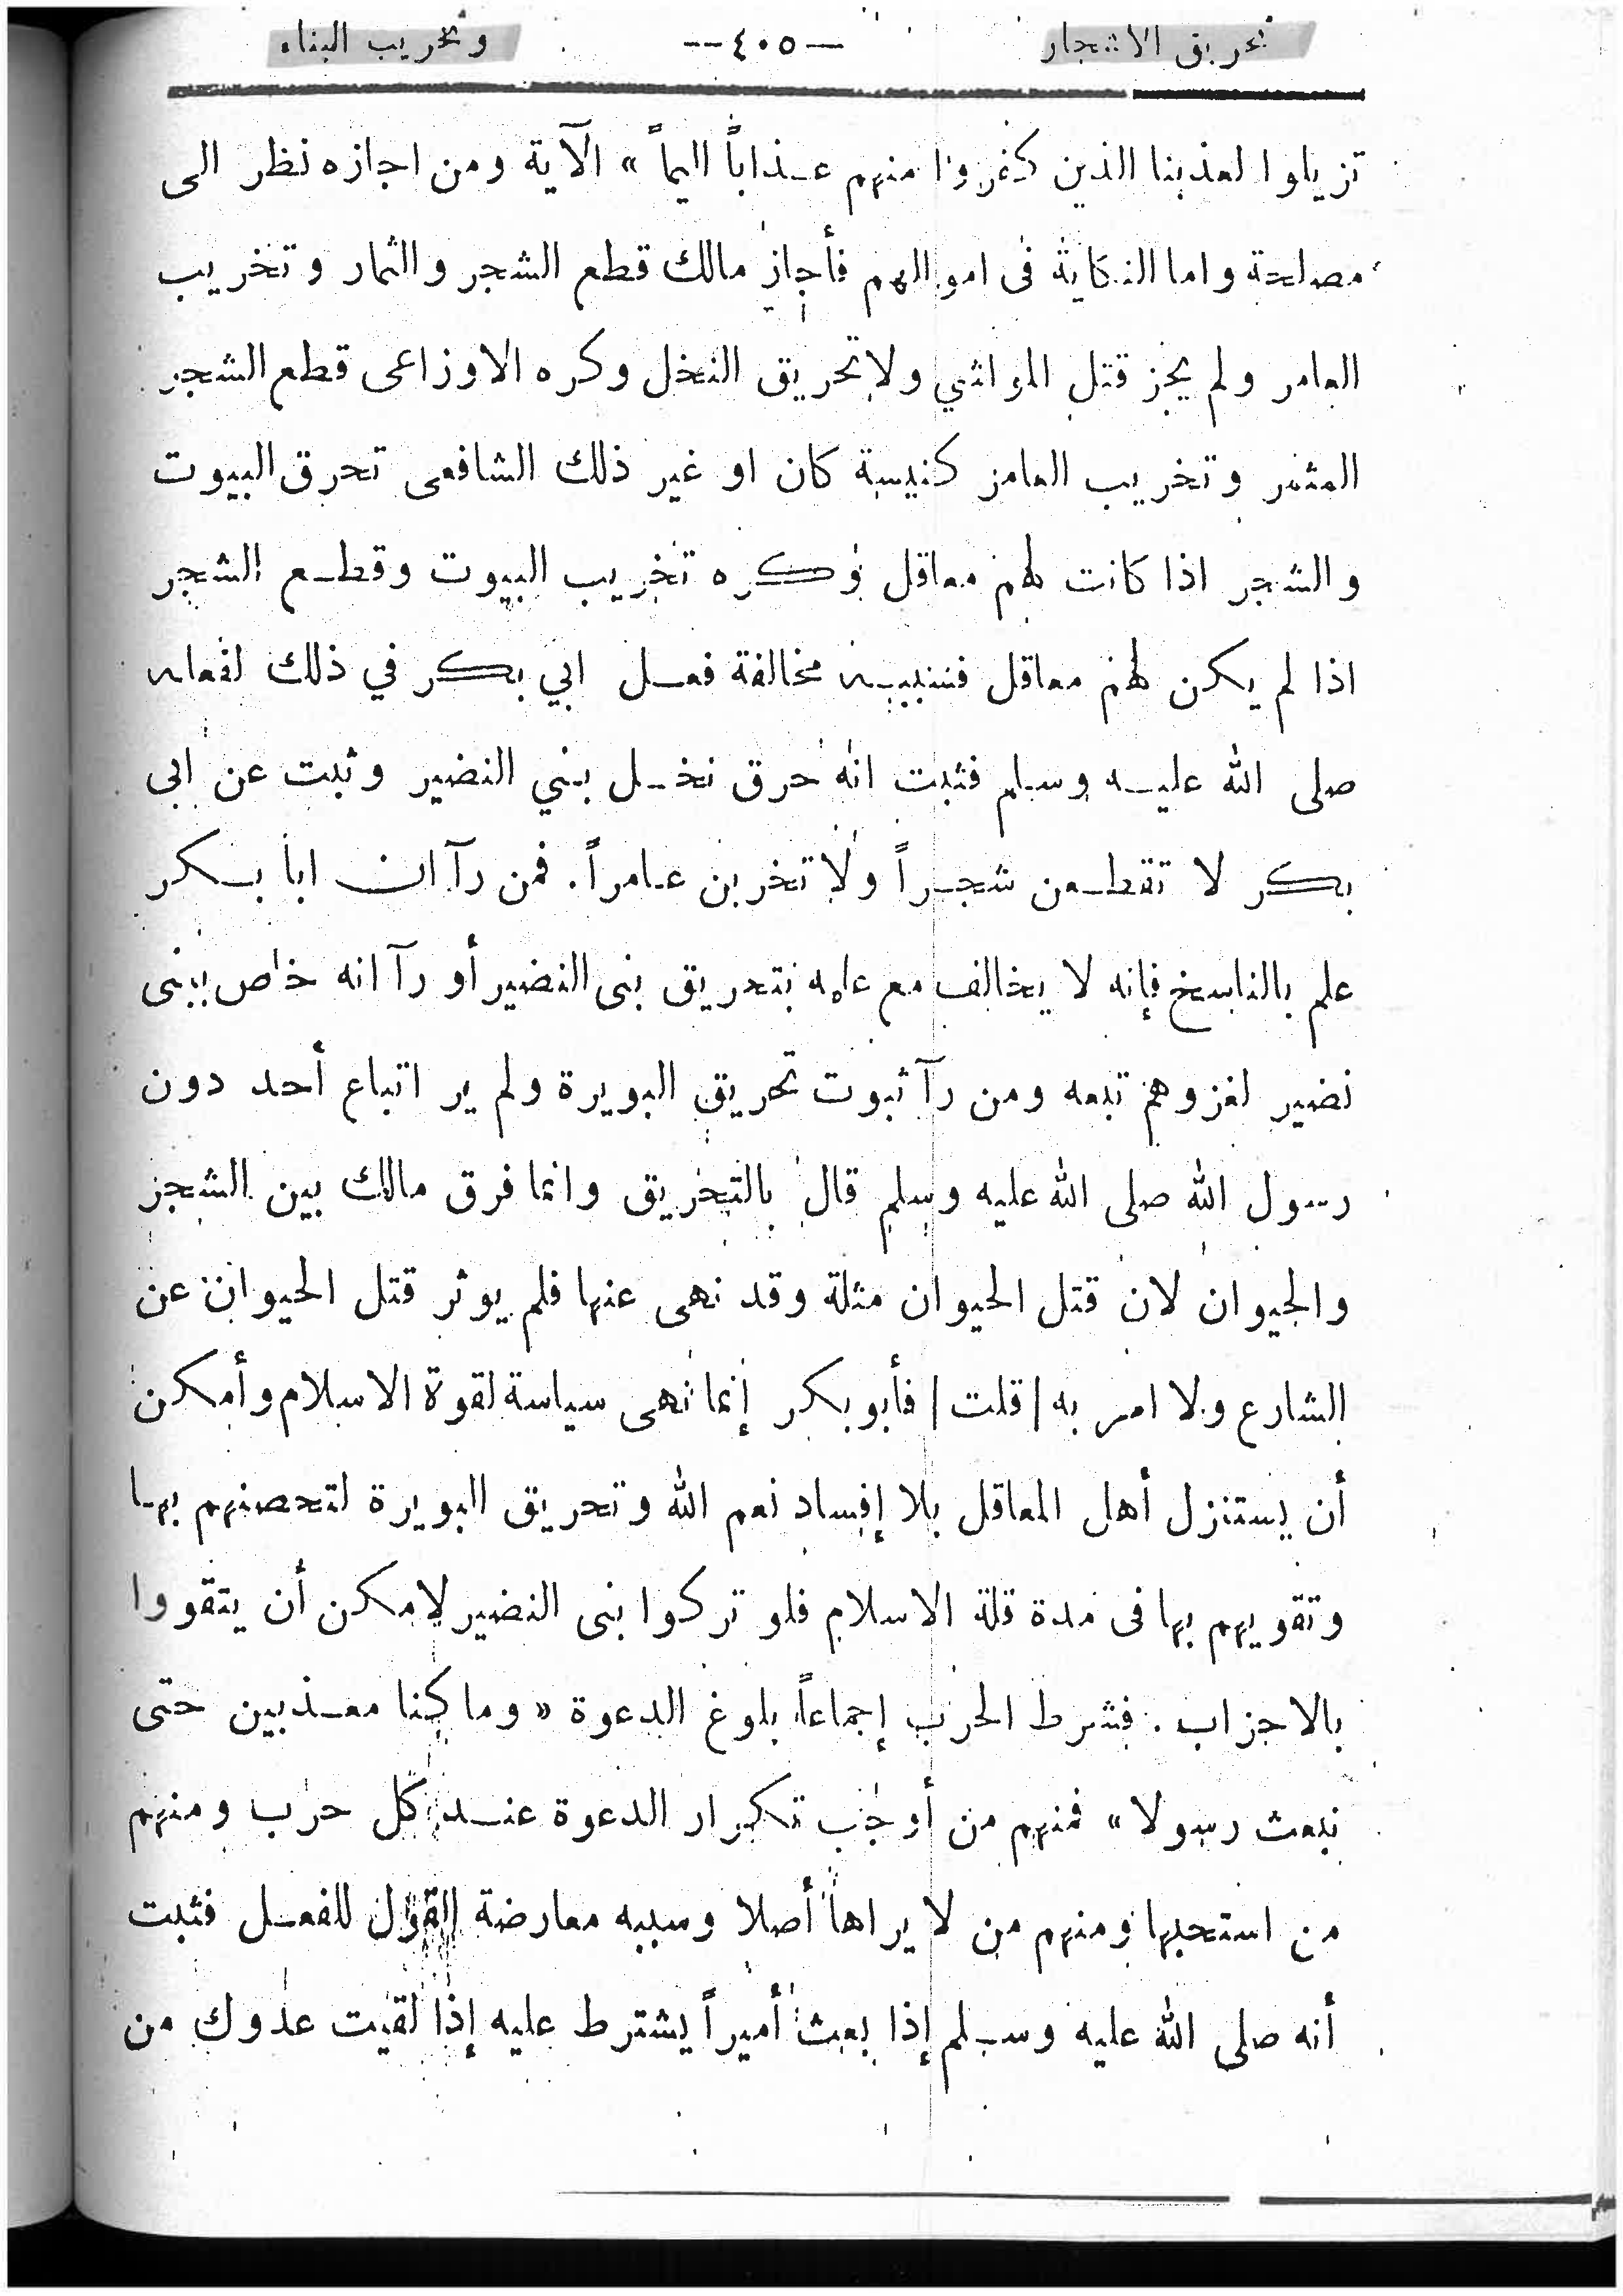 تحريق الاشجار —٤٠٥— وتخريب البناء
تزيلوا لعذبنا الذين كفروا منهم عذاباً اليماً » الآية ومن اجازه نظر الى
مصلحة واما النكاية فى اموالهم فأجاز مالك قطع الشجر والثمار وتخريب
العامر ولم يجز قتل المواشي ولا تحريق النخل وكره الاوزاعى قطع الشجر
المثمر وتخريب العامر كنيسة كان او غير ذلك الشافعى تحرق البيوت
والشجر اذا كانت لهم معاقل وكره تخريب البيوت وقطع الشجر
اذا لم يكن لهم معاقل فسببه مخالفة فعل ابي بكر في ذلك لفعله
صلى الله عليه وسلم فثبت انه حرق نخل بني النضير وثبت عن ابى
بكر لا تقطعن شجراً ولا تخربن عامراً. فمن رآ ان ابا بكر
علم بالناسخ فإنه لا يخالف مع علمه بتحريق بنى النضير أو رآ انه خاص ببنى
نضير لغزوهم تبعه ومن رآ ثبوت تحريق البويرة ولم ير اتباع أحد دون
رسول الله صلى الله عليه وسلم قال بالتحريق وانما فرق مالك بين الشجر
والحيوان لان قتل الحيوان مثلة وقد نهى عنها فلم يوثر قتل الحيوان عن
الشارع ولا امر به | قلت | فأبو بكر إنما نهى سياسة لقوة الاسلام وأمكن
أن يستنزل أهل المعاقل بلا إفساد نعم الله وتحريق البويرة لتحصنهم بها
وتقويهم بها فى مدة قلة الاسلام فلو تركوا بنى النضير لامكن أن يتقووا
بالاحزاب . فشرط الحرب إجماعاً بلوغ الدعوة « وما كنا معذبين حتى
نبعث رسولا » فمنهم من أوجب تكرار الدعوة عند كل حرب ومنهم
من استحبها ومنهم من لا يراها أصلا وسببه معارضة القول للفعل فثبت
أنه صلى الله عليه وسلم إذا بعث أميراً يشترط عليه إذا لقيت عدوك من